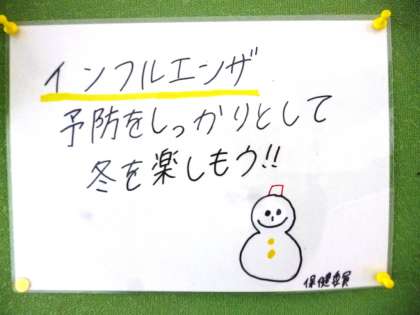 インフルエンザ
予防をしっかりとして
冬を楽しもう!!
保健委員